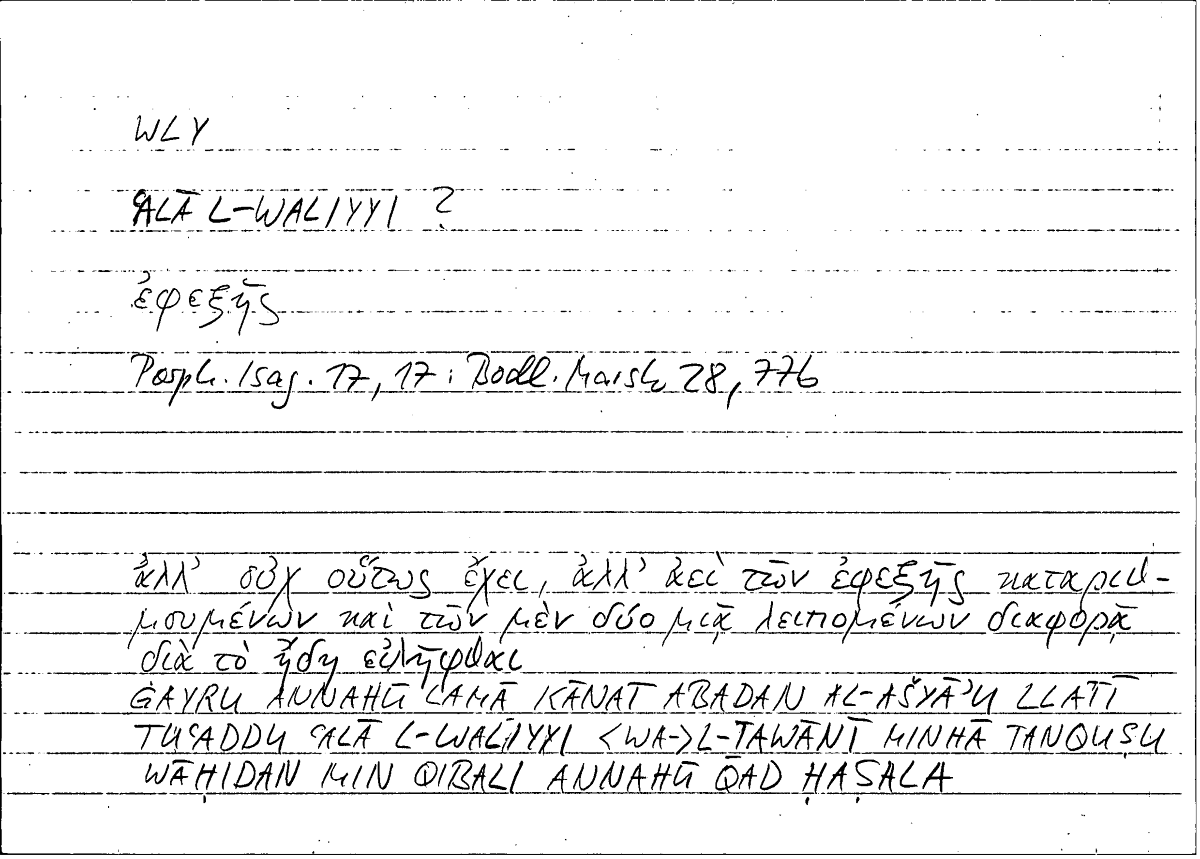 WLY
ʿALĀ L-WALIYYI ?
ἐφεξῆς
Porph. Isag. 17, 17 : Bodl. Marsh 28, 77b
ἀλλ' οὐχ οὕτως ἔχει, ἀλλ' ἀεὶ τῶν ἐφεξῆς καταριθ-
μουμένων καὶ τῶν μὲν δύο μιᾷ λειπομένων διαφορᾷ
διὰ τὸ ἤδη εἰλῆφθαι
ĠAYRU ANNAHŪ LAMĀ KĀNAT ABADAN AL-AŠYĀʾU LLATĪ
TUʿADDU ʿALĀ L-WALIYYI <WA->L-ṮAWĀNĪ MINHĀ TANQUṢU
WĀḤIDAN MIN QIBALI ANNAHŪ QAD ḤAṢALA